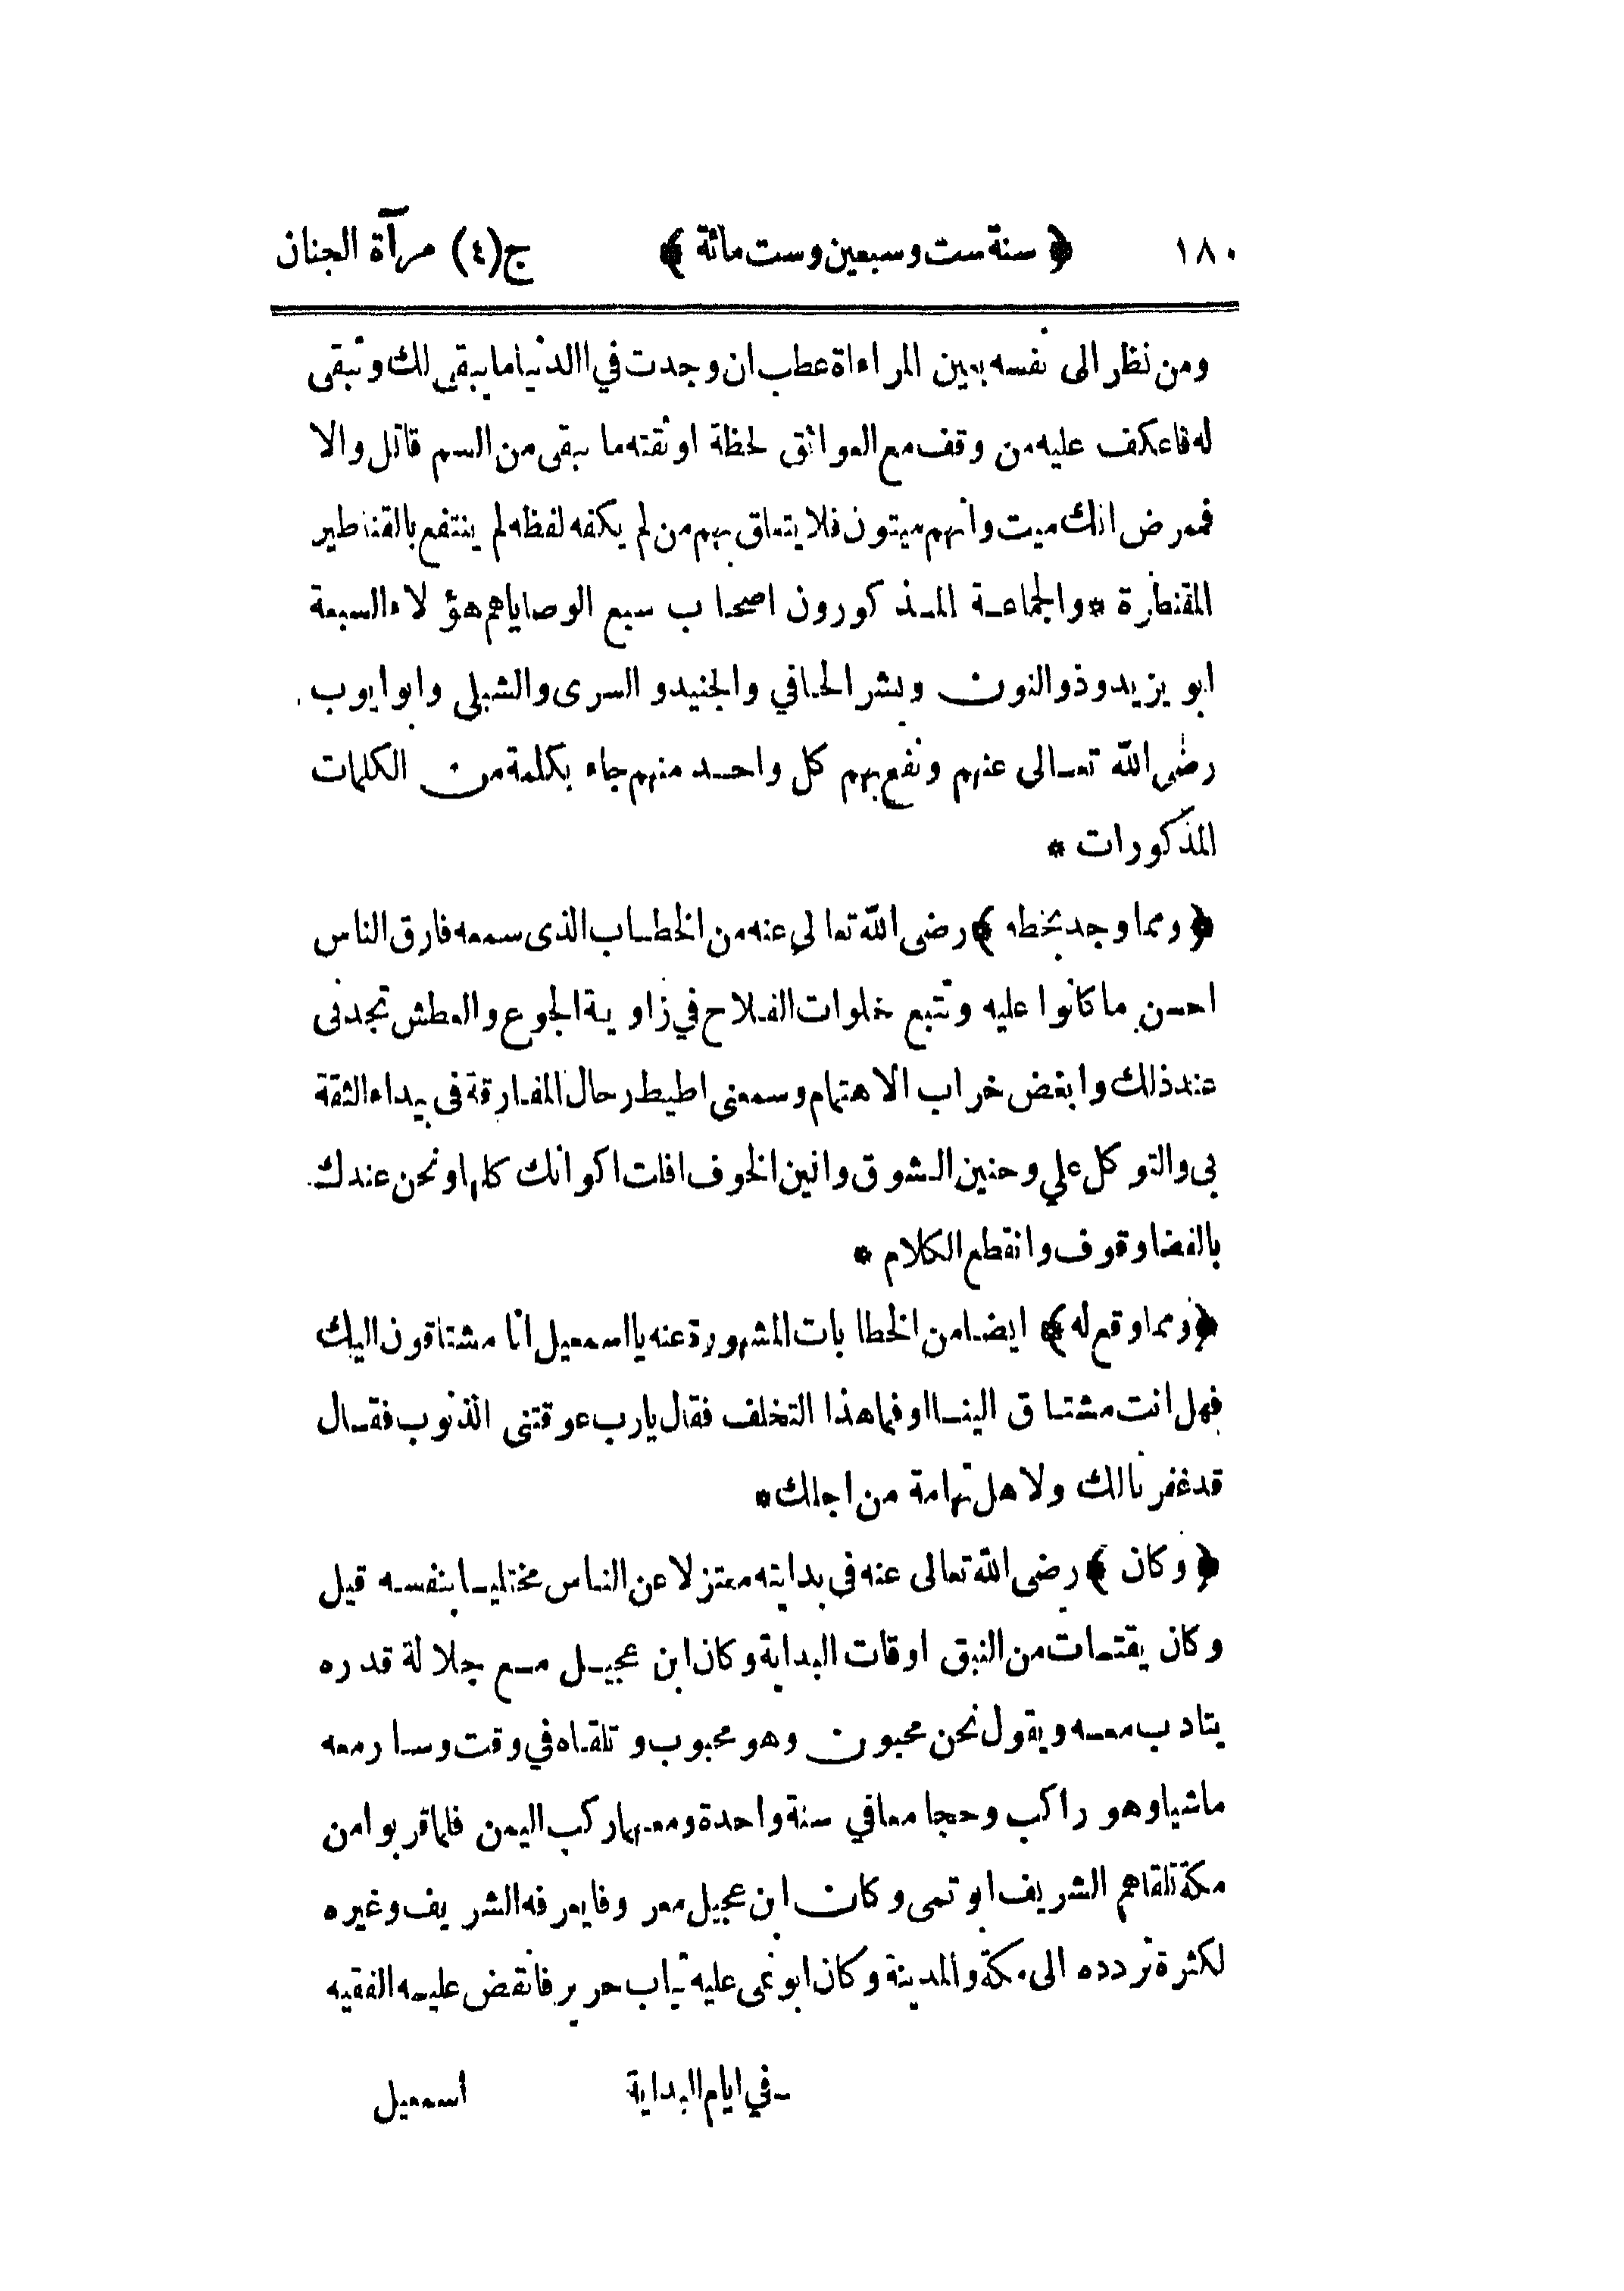 ١٨٠ ﴿ سنة ست وسبعين وست مائة ﴾ ج(٤) مرآة الجنان
ومن نظر الى نفسه بعين المراءاة عطب ان وجدت في االدنيا ما يبقى لك وتبقى
له فاعكف عليه من وقف مع العوائق لحظة اوثقته ما بقى من السم قاتل والا
فممرض انك ميت وانهم ميتون فلا يتعلق بهم من لم يكفه لفظه لم ينتفع بالقناطير
المقنطرة * والجماعة المذكورون اصحاب سبع الوصايا هم هؤلاء السبعة
ابو يزيد وذو النون وبشر الحافي والجنيد و السرى والشبلى وابو ايوب
رضى الله تعالى عنهم ونفع بهم كل واحد منهم جاء بكلمة من الكلمات
المذكورات *
﴿ ومما وجد بخطه ﴾ رضى الله تعالى عنه من الخطاب الذى سمعه فارق الناس
احسن ما كانوا عليه وتتبع خلوات الفلاح في زاوية الجوع والعطش تجدنى
عند ذلك وابغض خراب الاهتمام وسمعنى اطيط رحال المفارقة فى بيداء الثقة
بى والتوكل على وحنين الشوق وانين الخوف افلت اكوانك كلها ونحن عندك
بالفضا وقوف وانقطع الكلام *
﴿ ومما وقع له ﴾ ايضا من الخطابات المشهورة عنه يا اسمعيل انا مشتاقون اليك
فهل انت مشتاق الينا او فما هذا التخلف فقال يارب عوقتنى الذنوب فقال
قد غفرنا لك ولاهل تهامة من اجلك *
﴿ وكان ﴾ رضى الله تعالى عنه فى بدايته معتزلا عن الناس مختليا بنفسه قيل
وكان يقتات من النبق اوقات البداية وكان ابن عجيل مع جلالة قدره
يتادب معه ويقول نحن محبون وهو محبوب و تلقاه في وقت وسار معه
ماشيا وهو راكب وحجا معا في سنة واحدة ومعهما ركب اليمن فلما قربوا من
مكة تلقاهم الشريف ابو تمى وكان ابن عجيل معروفا يعرفه الشريف وغيره
لكثرة تردده الى مكة والمدينة وكان ابو نمى عليه ثياب حرير فانقض عليه الفقيه
ـ في ايام البداية اسمعيل